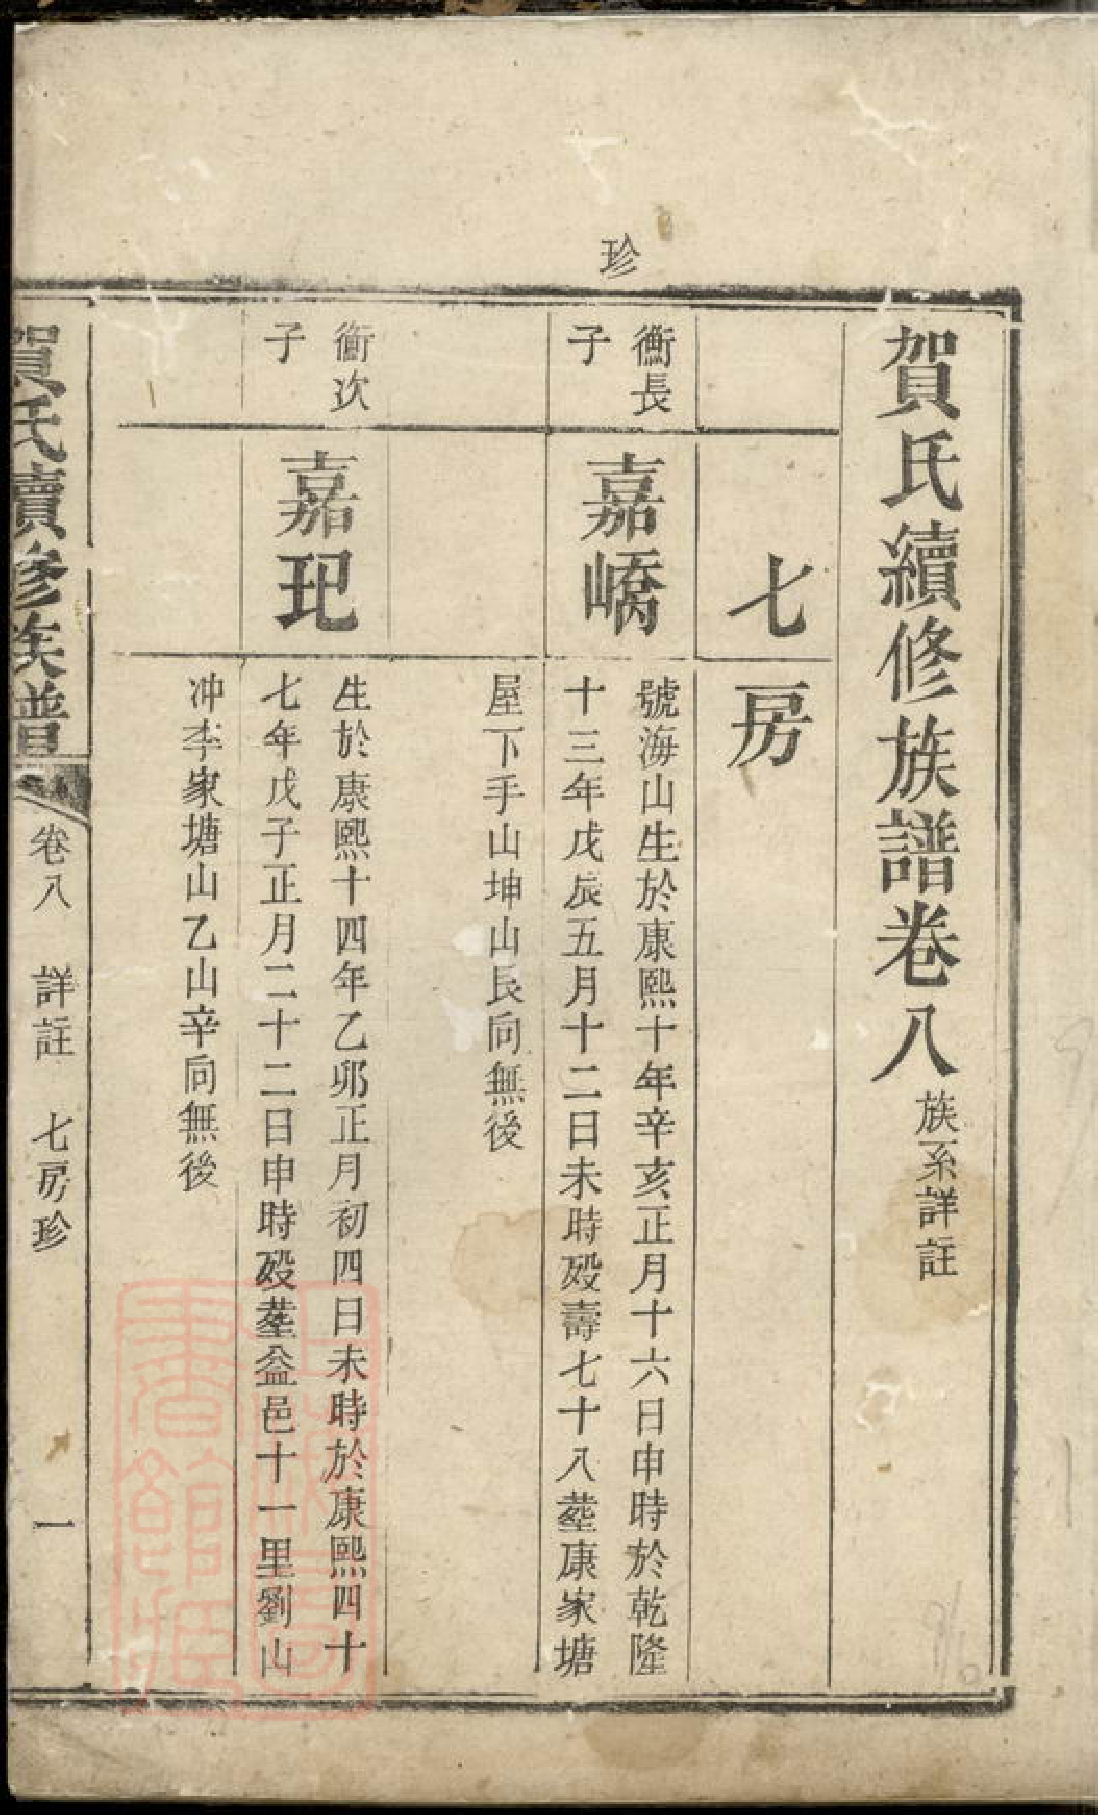 珍
賀氏續修族譜卷八 族系詳註
七房
衡長
子
嘉嶠
號海山生於康熙十年辛亥正月十六日申時於乾隆
十三年戊辰五月十二日未時殁壽七十八塟康家塘
屋下手山坤山艮向無後
衡次
子
嘉玘
生於康熙十四年乙卯正月初四日未時於康熙四十
七年戊子正月二十二日申時殁塟益邑十一里劉山
冲李家塘山乙山辛向無後
賀氏續修族譜 卷八 詳註 七房珍 一